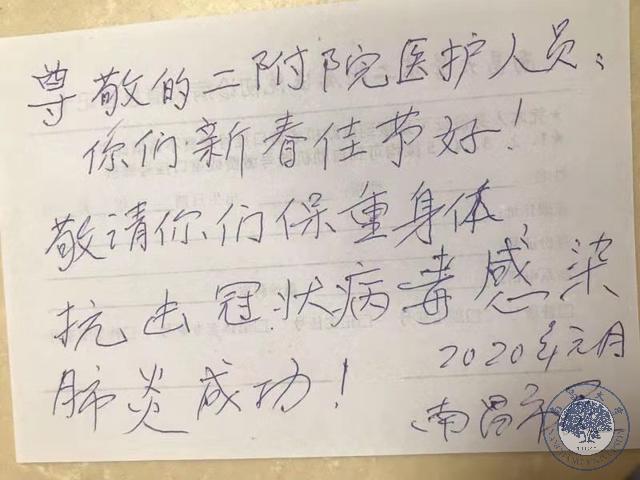 尊敬的二附院医护人员：
你们新春佳节好！
敬请你们保重身体，
抗击冠状病毒感染
肺炎成功！
2020年元月
南昌市